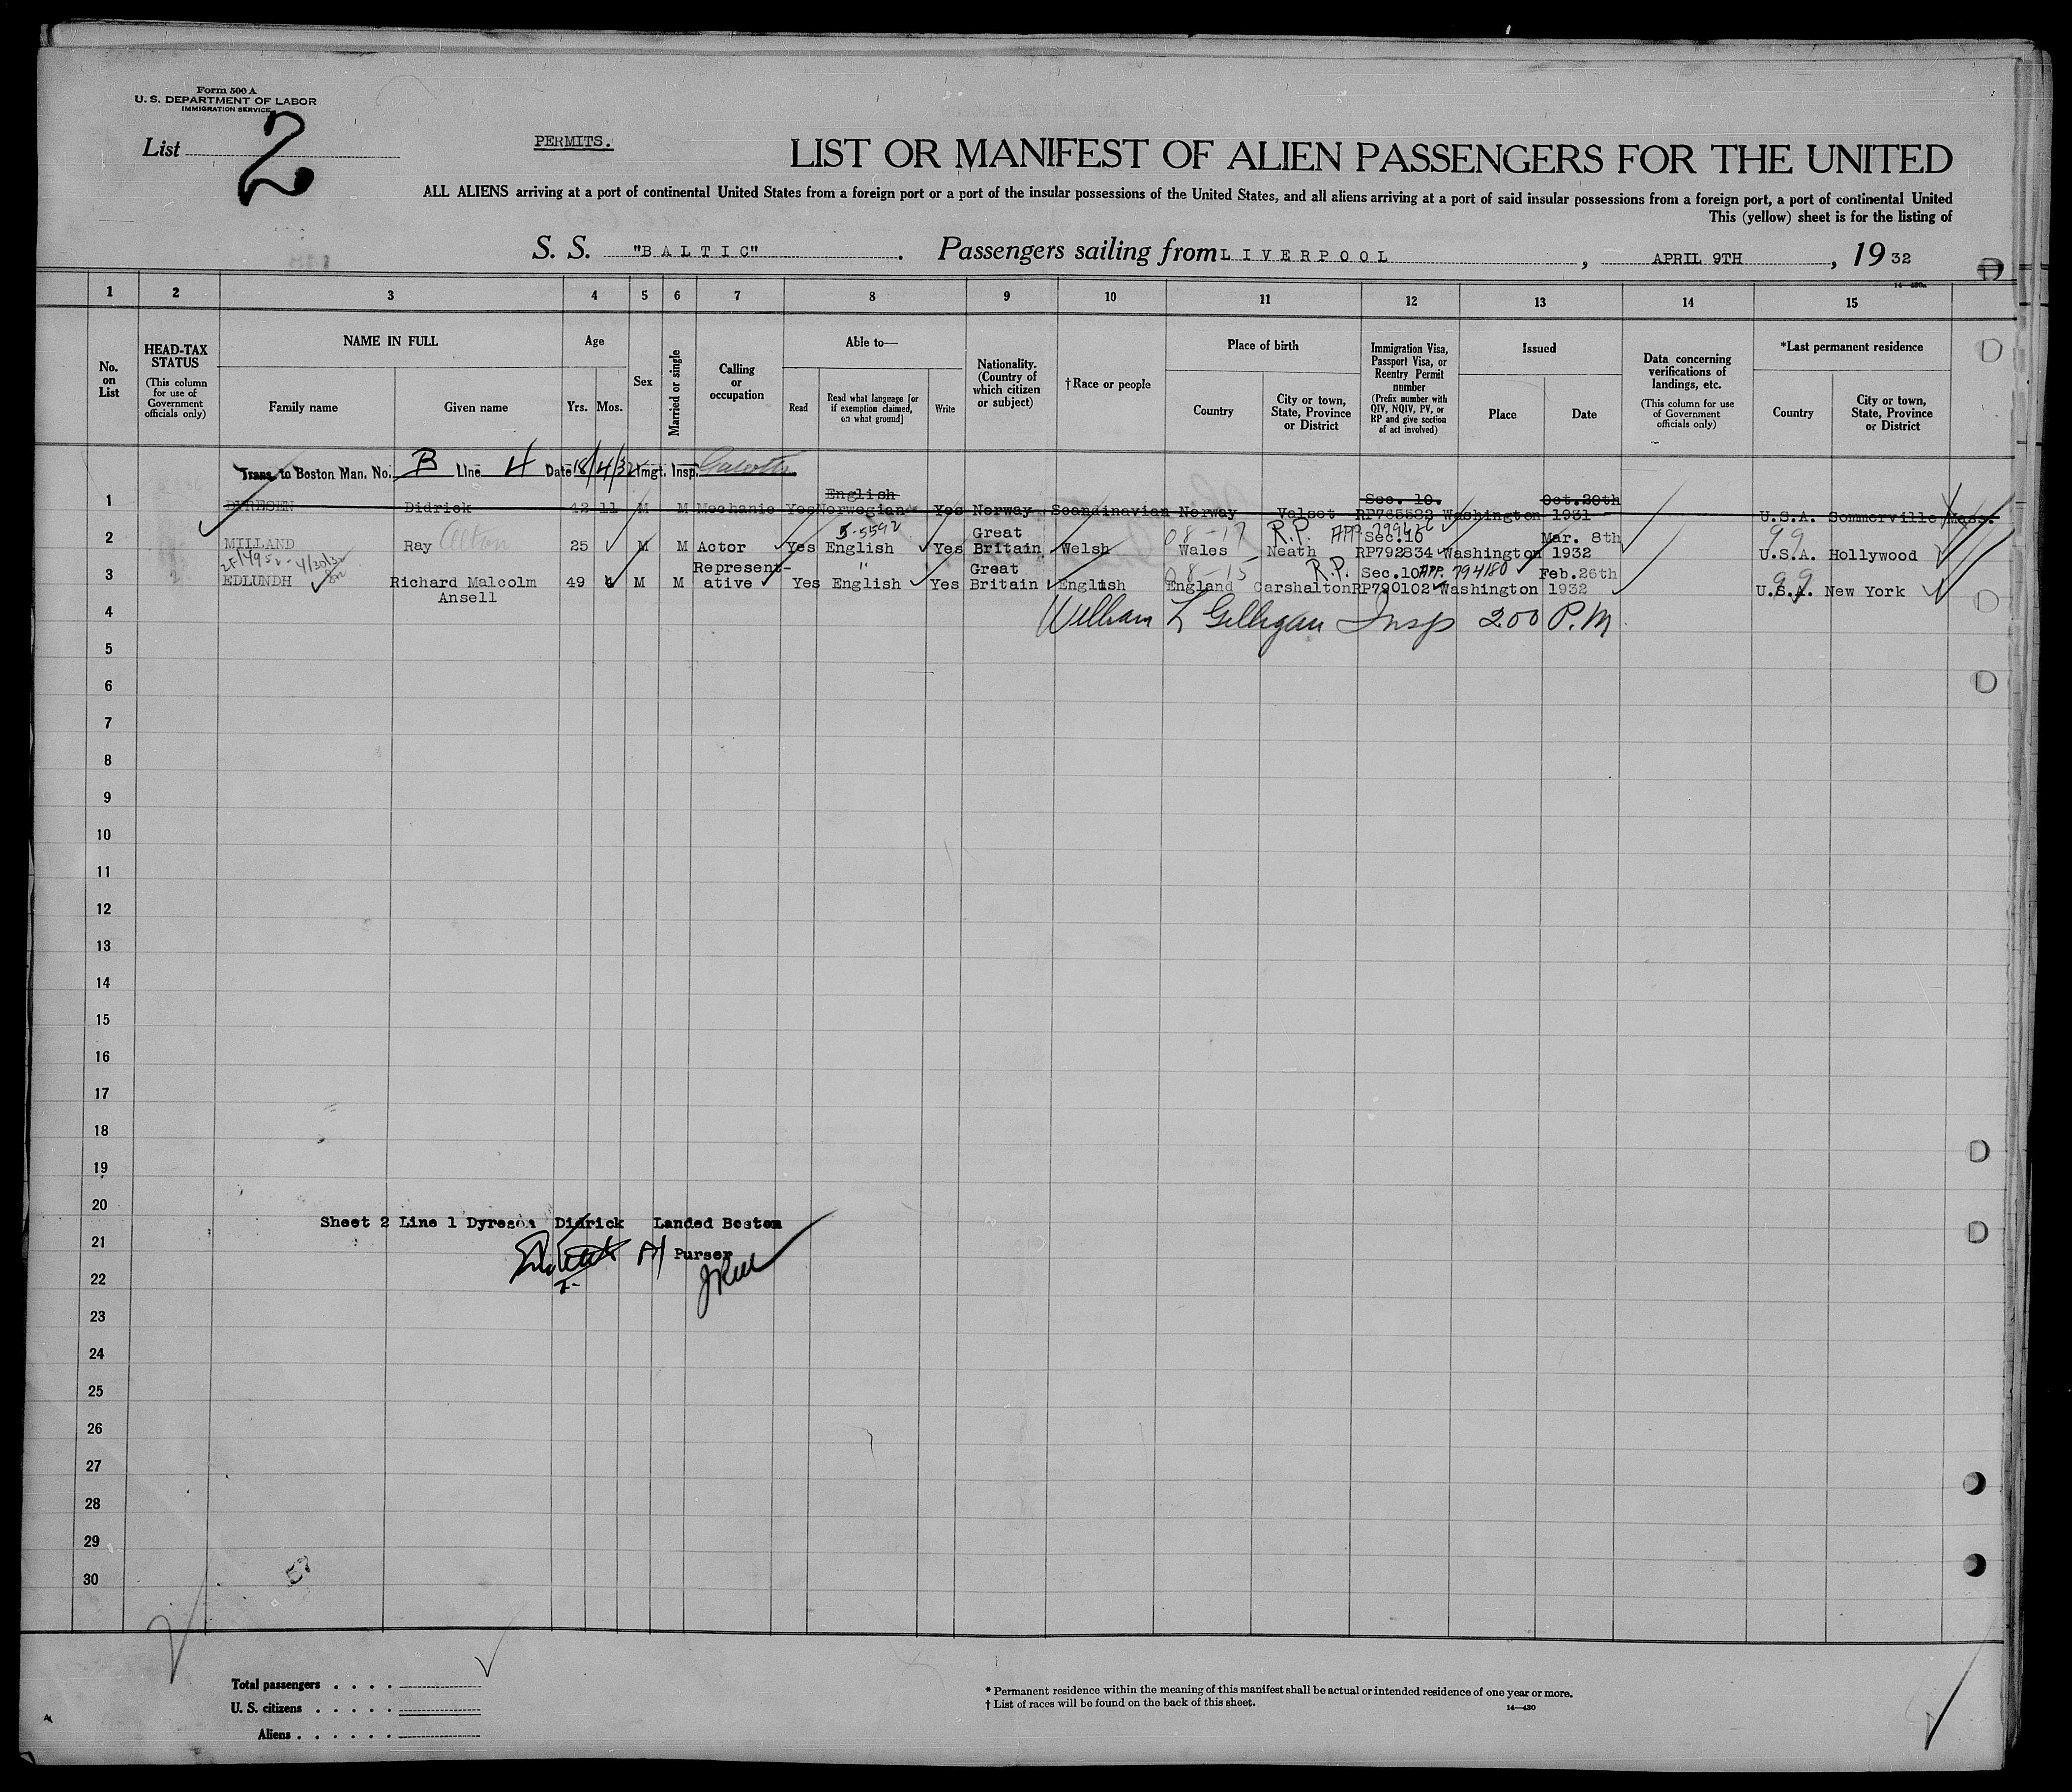 Form 500 A
U. S. DEPARTMENT OF LABOR
IMMIGRATION SERVICE
List 2
PERMITS.
LIST OR MANIFEST OF ALIEN PASSENGERS FOR THE UNITED
ALL ALIENS arriving at a port of continental United States from a foreign port or a port of the insular possessions of the United States, and all aliens arriving at a port of said insular possessions from a foreign port, a port of continental United
This (yellow) sheet is for the listing of
S. S. "BALTIC". Passengers sailing from LIVERPOOL, APRIL 9TH, 19 32
14-430a
1 2 3 4 5 6 7 8 9 10 11 12 13 14 15
No. on List
HEAD-TAX STATUS
(This column for use of Government officials only)
NAME IN FULL
Family name Given name
Age
Yrs. Mos.
Sex
Married or single
Calling or occupation
Able to—
Read
Read what language [or if exemption claimed, on what ground]
Write
Nationality. (Country of which citizen or subject)
†Race or people
Place of birth
Country
City or town, State, Province or District
Immigration Visa, Passport Visa, or Reentry Permit number
(Prefix number with QIV, NQIV, PV, or RP and give section of act involved)
Issued
Place Date
Data concerning verifications of landings, etc.
(This column for use of Government officials only)
*Last permanent residence
Country
City or town, State, Province or District
Trans. to Boston Man. No. B Line 4 Date 18/4/32 Imgt. Insp.
English Sec. 10. Oct.20th
1 DYRESEN Didrick 42 11 M M Mechanic Yes Norwegian Yes Norway Scandinavian Norway Valset RP765583 Washington 1931 U.S.A. Sommerville Mass.
5-5592 Great 08-17 R.P. APP. Sec.10 Mar. 8th 99
2 MILLAND Ray 25 M M Actor Yes English Yes Britain Welsh Wales Neath RP792834 Washington 1932 U.S.A. Hollywood
Represent- " Great 08-15 R.P. Sec.10 APP. 794180 Feb.26th 99
3 EDLUNDH Richard Malcolm 49 4 M M ative Yes English Yes Britain English England Carshalton RP790102 Washington 1932 U.S.A. New York
Ansell
4 William L Gilligan Insp 200 P.M.
5
6
7
8
9
10
11
12
13
14
15
16
17
18
19
20
Sheet 2 Line 1 Dyresen Didrick Landed Boston
21
Purser
22
23
24
25
26
27
28
29
30
Total passengers . . . .
U. S. citizens . . . . .
Aliens . . . . . .
* Permanent residence within the meaning of this manifest shall be actual or intended residence of one year or more.
† List of races will be found on the back of this sheet.
14—430